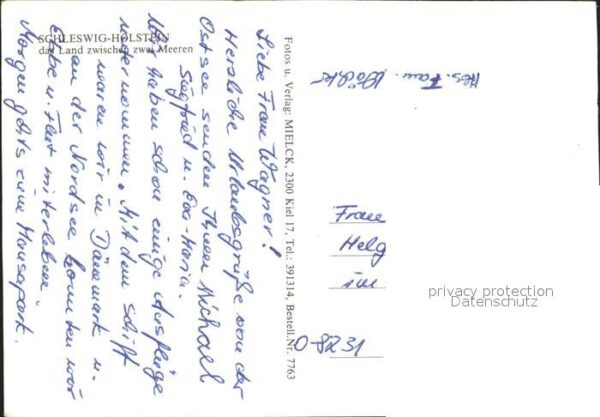 SCHLESWIG-HOLSTEIN
das Land zwischen zwei Meeren
Liebe Frau Wagner!
Herzliche Urlaubsgrüße von der
Ostsee senden Ihnen Michael
Siegfried u. Eva-Maria.
Wir haben schon einige Ausflüge
unternommen. Mit dem Schiff
waren wir in Dänemark u.
an der Nordsee konnten wir
Ebbe u. Flut miterleben.
Morgen gehts zum Hansapark.
Fotos u. Verlag: MIELCK, 2300 Kiel 17, Tel.: 391314, Bestell.Nr. 7763
Frau
Helg
im
O-8231
privacy protection
Datenschutz